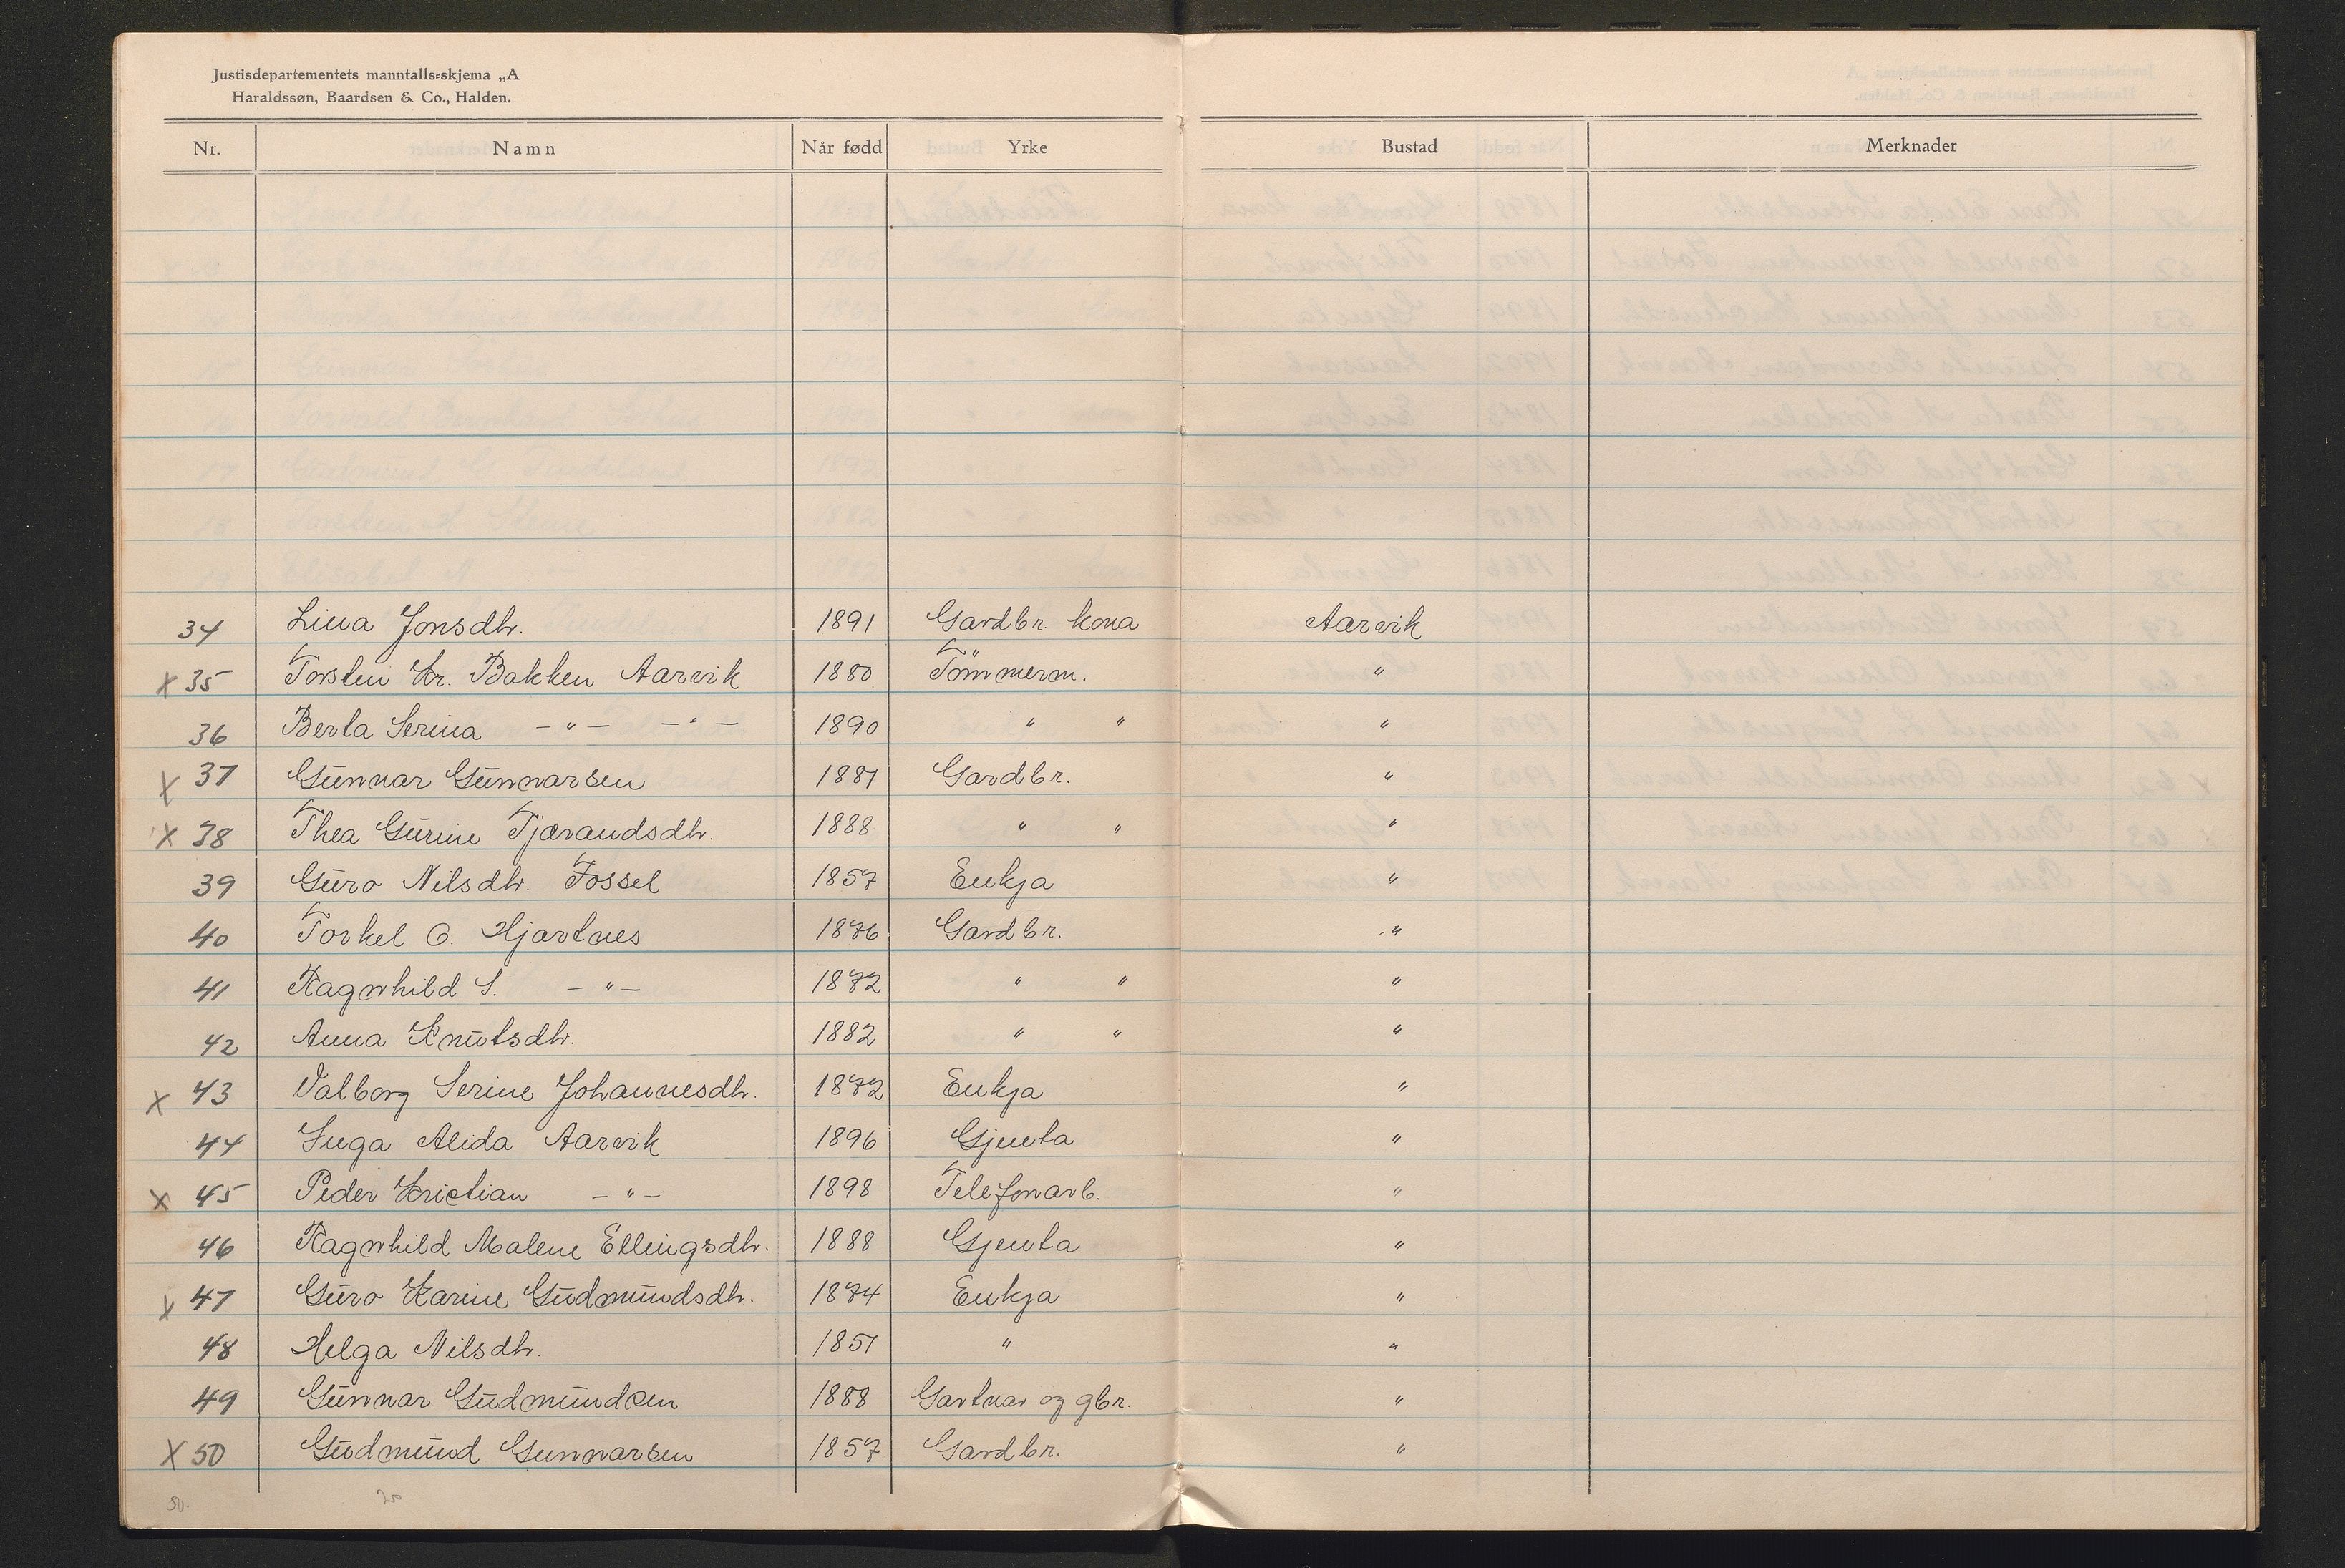 Justisdepartementets manntalls-skjema „A
Haraldssøn, Baardsen & Co., Halden.
Nr. Namn Når fødd Yrke Bustad Merknader
34 Lina Jonsdtr. 1891 Gardbr. kona Aarvik
x 35 Torsten Kr. Bakken Aarvik 1880 Tömmerm. "
36 Berta Serina — " — — " — 1890 " " "
x 37 Gunnar Gunnarsen 1881 Gardbr. "
x 38 Thea Gurine Tjærandsdtr. 1888 " " "
39 Guro Nilsdtr. Fossel 1857 Enkja "
40 Torkel O. Hjartnes 1876 Gardbr. "
41 Ragnhild S. — " — 1872 " " "
42 Anna Knutsdtr. 1882 " " "
x 43 Valborg Serine Johannesdtr. 1872 Enkja "
44 Inga Alida Aarvik 1896 Gjenta "
x 45 Peder Kristian — " — 1898 Telefonarb. "
46 Ragnhild Malene Ellingsdtr. 1888 Gjenta "
x 47 Guro Karine Gudmundsdtr. 1874 Enkja "
48 Helga Nilsdtr. 1851 " "
49 Gunnar Gudmundsen 1888 Gartnar og gbr. "
x 50 Gudmund Gunnarsen 1857 Gardbr. "